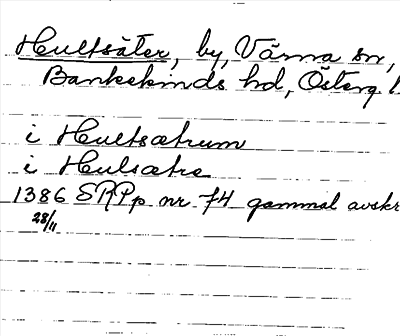 Hultsäter, by, Värna sn,
Bankekinds hd, Österg l.
i Hultsætrum
i Hulsætre
1386 SRPp nr 74 gammal avskr
28/11